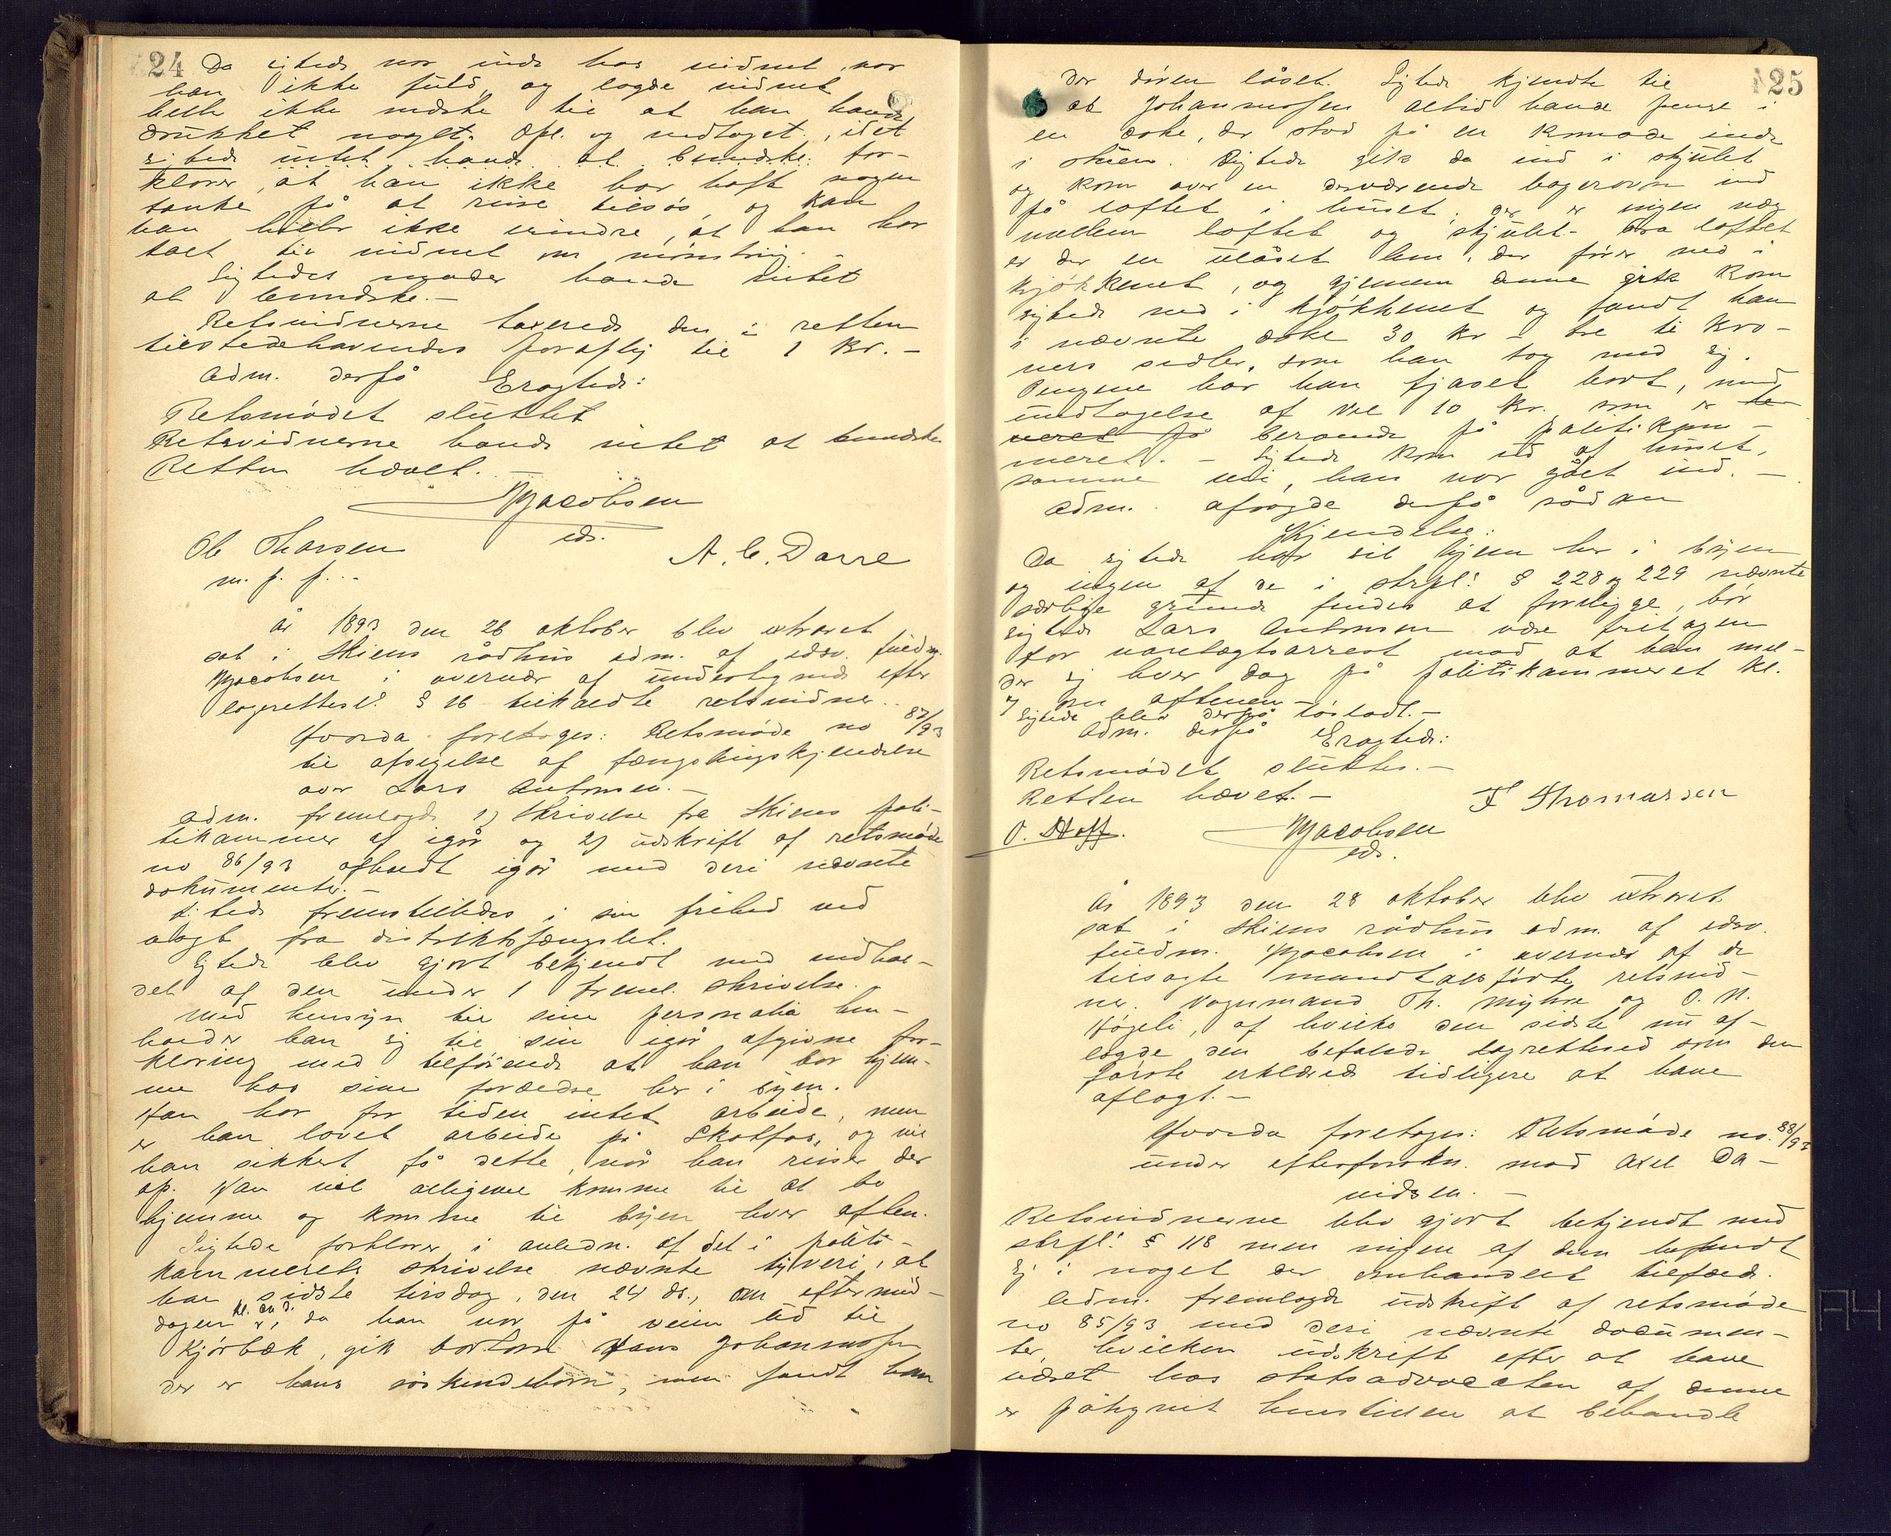 24
Da sigtede var inde hos vidnet var
han ikke fuld, og lagde vidnet
heller ikke mærke til at han havde
drukket noget. Opl. og vedtaget, idet
sigtede intet havde at bemærke. for-
klarer, at han ikke har havt nogen
tanke på at reise tilsøs og kan
han heller ikke erindre, at han har
talt til vidnet om mønstring. -
Sigtedes moder havde intet
at bemærke. -
Retsvidnerne taxerede den i retten
tilstedehavendes til 1 kr. -
Adm. derpå Eragtede:
Retsmødet sluttet
Retsvidnerne havde intet at bemærke
Retten hævet. -
Mjacobsen
eds.
Ol. Thorsen
m. p. p. . .
A. C. Darre
År 1893 den 26 oktober blev extraret
sat i Skiens rådhus adm. af edsv. fuldm.
Mjacobsen i overvær af undertegnede efter
lagrettesl. § 16 tilkaldte retsvidner.
Hvorda foretoges: Retsmøde no 87/93
til afsigelse af fængslingskjendelse
over Lars Antonsen. -
Adm. fremlagde 1) skrivelse fra Skiens poli-
tikammer af igår og 2) udskrift af retsmøde
no 86/93 afholdt igår med deri nævnte
dokumenter. -
Sigtede fremstilledes i sin frihed ved
vagt fra distriktsfængslet.
Sigtede blev gjort bekjendt med indhol-
det af den under 1 freml. skrivelse.
Med hensyn til sine personalia hen-
holder han sig til sin igår afgivne for-
klaring med tilføiende at han bor hjem-
me hos sine forældre her i byen.
Han har for tiden intet arbeide, men
er han lovet arbeide på Skotfos, og vil
han sikkert få dette, når han reiser der
op. Han vil alligevel komme til at bo
hjemme og komme til byen hver aften.
Sigtede forklarer i anledn. af det i politi-
kammerets skrivelse nævnte tyveri, at
han sidste tirsdag, den 24 ds., om eftermid-
dagen, da han var på veien ud til
Kjørbæk, gik bortom Hans Johannessen
der er hans søskendebarn, men fandt han
125
der døren låset. Sigtede kjendte til
at Johannessen altid havde penge i
en æske, der stod på en komode inde
i stuen. Sigtede gik da ind i skjulet
og kom over en derværende bagerovn ind
på loftet i huset, der er ingen væg
mellem loftet og skjulet. Fra loftet
er der en ulåset lem, der fører ned i
kjøkkenet, og gjennem denne gik kom
sigtede ned i kjøkkenet og fandt han
i nævnte æske 30 kr - tre ti kro-
ners sedler, som han tog med sig.
Pengene har han fjaset bort, med
undtagelse af vel 10 kr. som er
beroende på politikam-
meret. - Sigtede kom ud af huset,
samme vei, han var gået ind. -
Adm. afsagde derpå sådan
Kjendelse:
Da sigtede har sit hjem her i byen
og ingen af de i strpl. § 228 og 229 nævnte
særlige grunde findes at foreligge, bør
sigtede Lars Antonsen være fritagen
for varetægtsarrest mod at han mel-
der sig hver dag på politikammeret kl.
7 om aftenen. -
Sigtede blev derpå løsladt. -
Adm. derpå Eragtede:
Retsmødet sluttes. -
Retten hævet. -
F Thomassen
O. Hoff.
Mjacobsen
eds.
År 1893 den 28 oktober blev extraret
sat i Skiens rådhus adm. af edsv.
fuldm. Mjacobsen i overvær af de
tilsagte mandtalsførte retsvid-
ner. Vognmand Th. Myhre og O. N.
Høgeli, af hvilke den sidste nu af-
lagde den befalede lagretteed som den
første erklærede tidligere at have
aflagt. -
Hvorda foretoges: Retsmøde no. 88/93
under efterforskn. mod Axel Da-
vidsen. -
Retsvidnerne blev gjort bekjendt med
strpl. § 118 men ingen af dem befandt
sig i noget der omhandlet tilfælde.
Adm. fremlagde udskrift af retsmøde
no 85/93 med deri nævnte documen-
ter, hvilken udskrift efter at have
været hos statsadvocaten af denne
er påtegnet henstillen at behandle